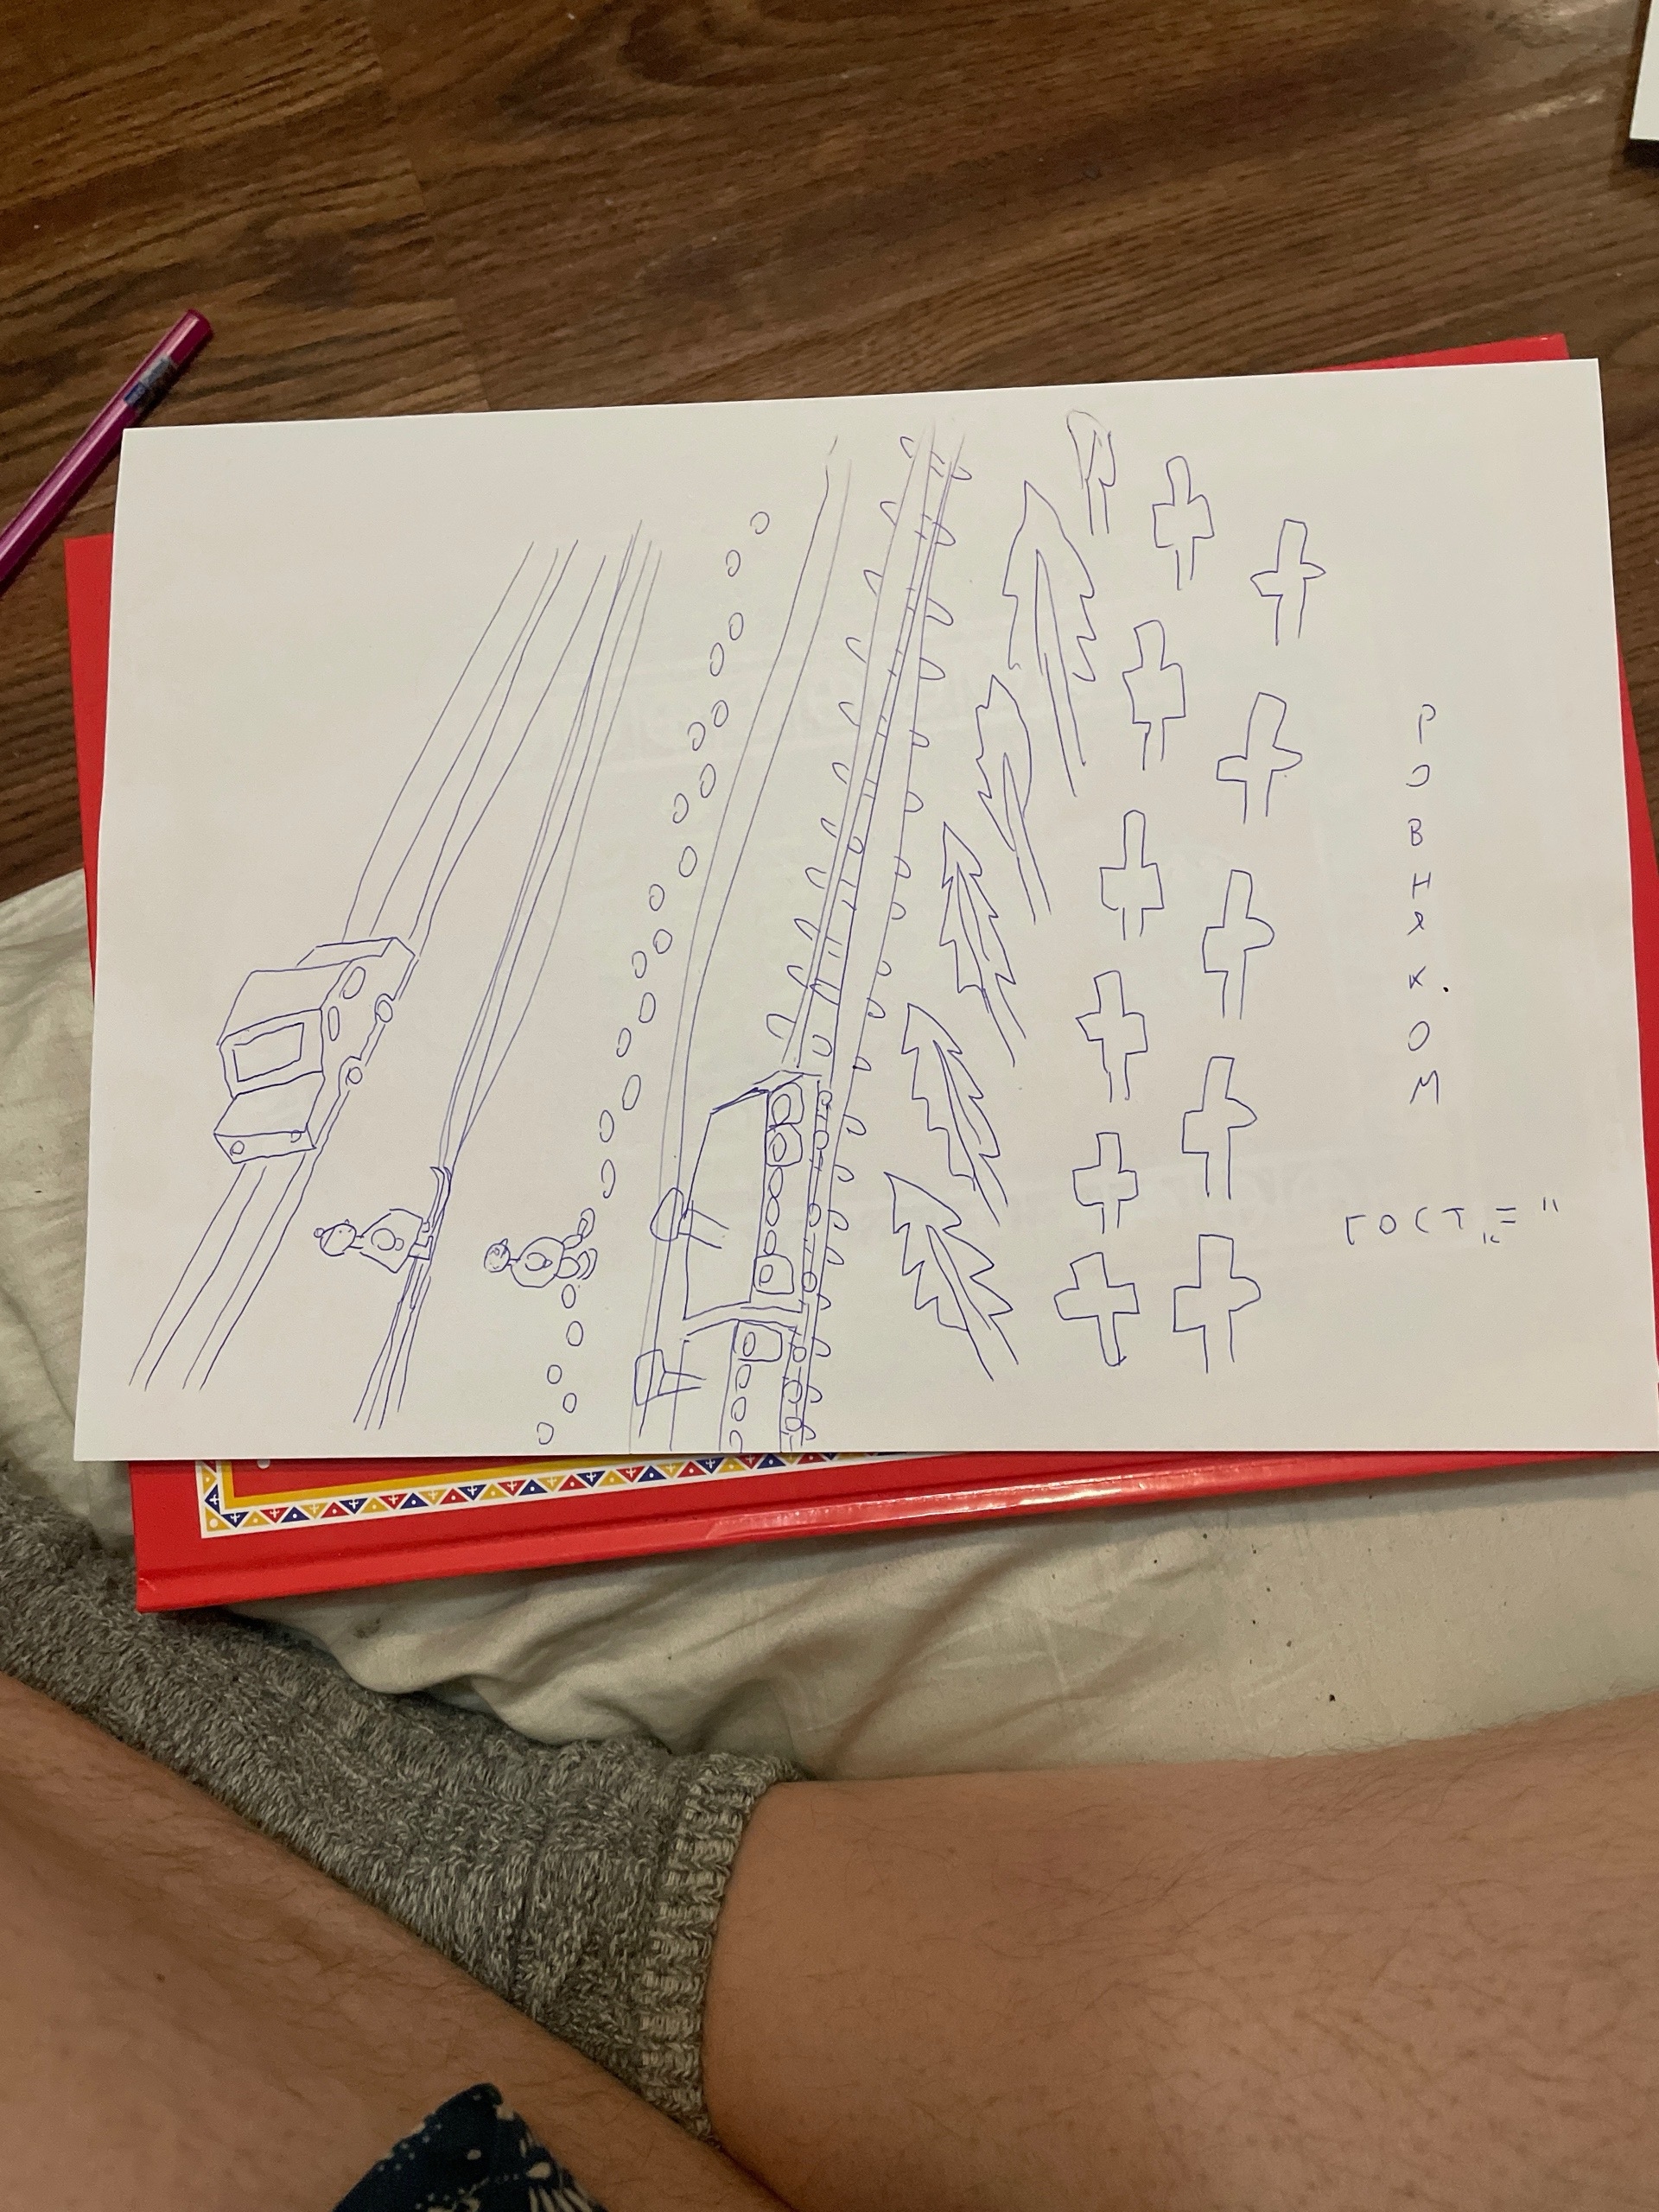 РОВНЯК.ОМ
ГОСТ „="